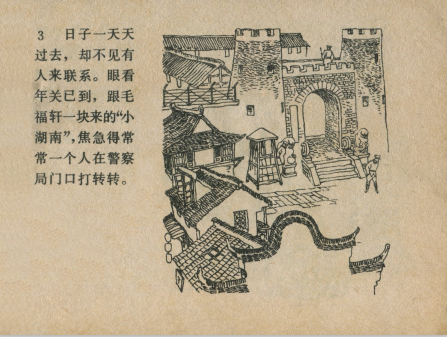 3 日子一天天
过去，却不见有
人来联系。眼看
年关已到，跟毛
福轩一块来的“小
湖南”，焦急得常
常一个人在警察
局门口打转转。